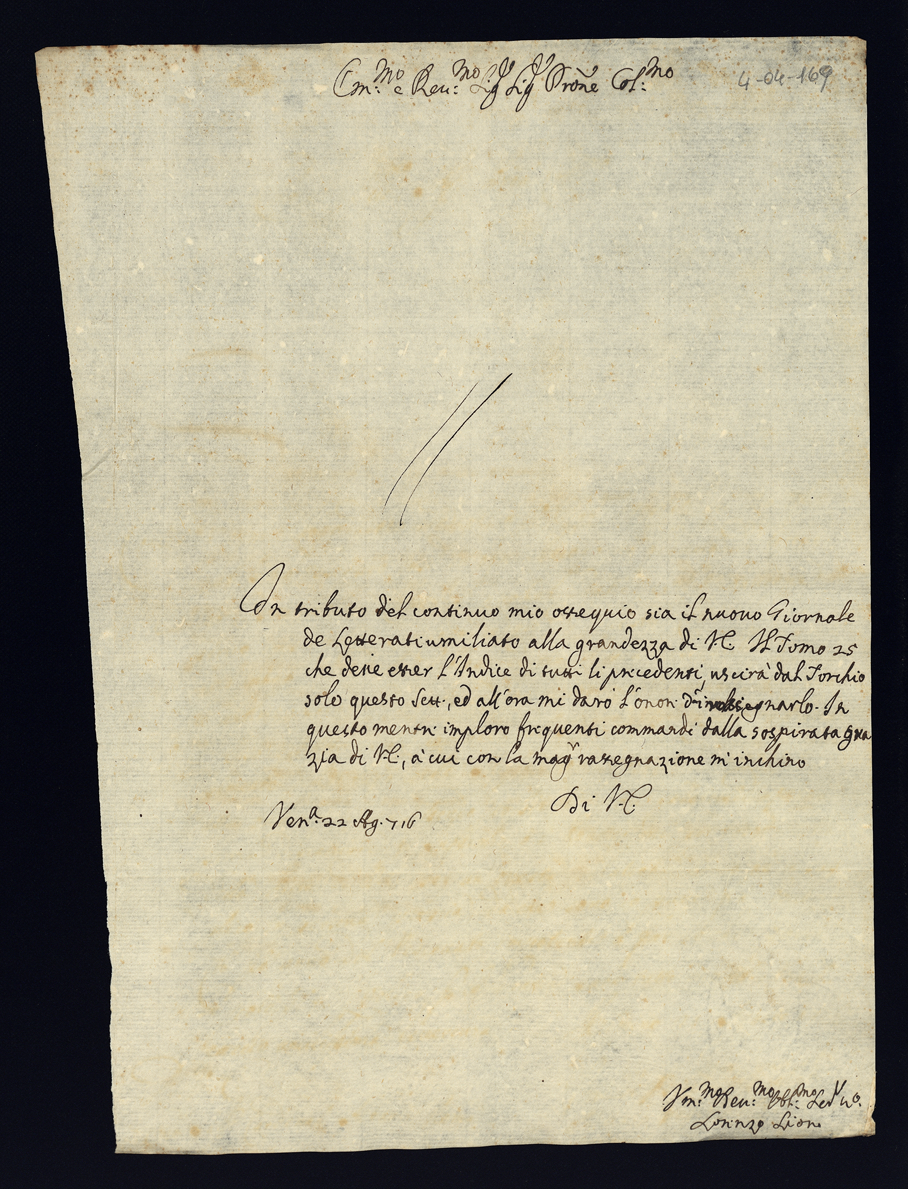 Em:mo e Reu:mo Sigr Sigr Prõne Col:mo
4-04-169
In tributo del continuo mio ossequio sia il nuouo Giornale
de Letterati umiliato alla grandezza di V.E. Il Tomo 25
che deue esser l'Indice di tutti li precedenti, uscirà dal Torchio
solo questo Sett., ed all'ora mi darò l'onor d'
In
questo mentre imploro frequenti commandi dalla sospirata gra
zia di V.E., à cui con la magr rassegnazione m'inchino
Di V.E.
Vena: 22 Ag. 716
Vm:mo Reu:mo Obl:mo Ser
Lorenzo